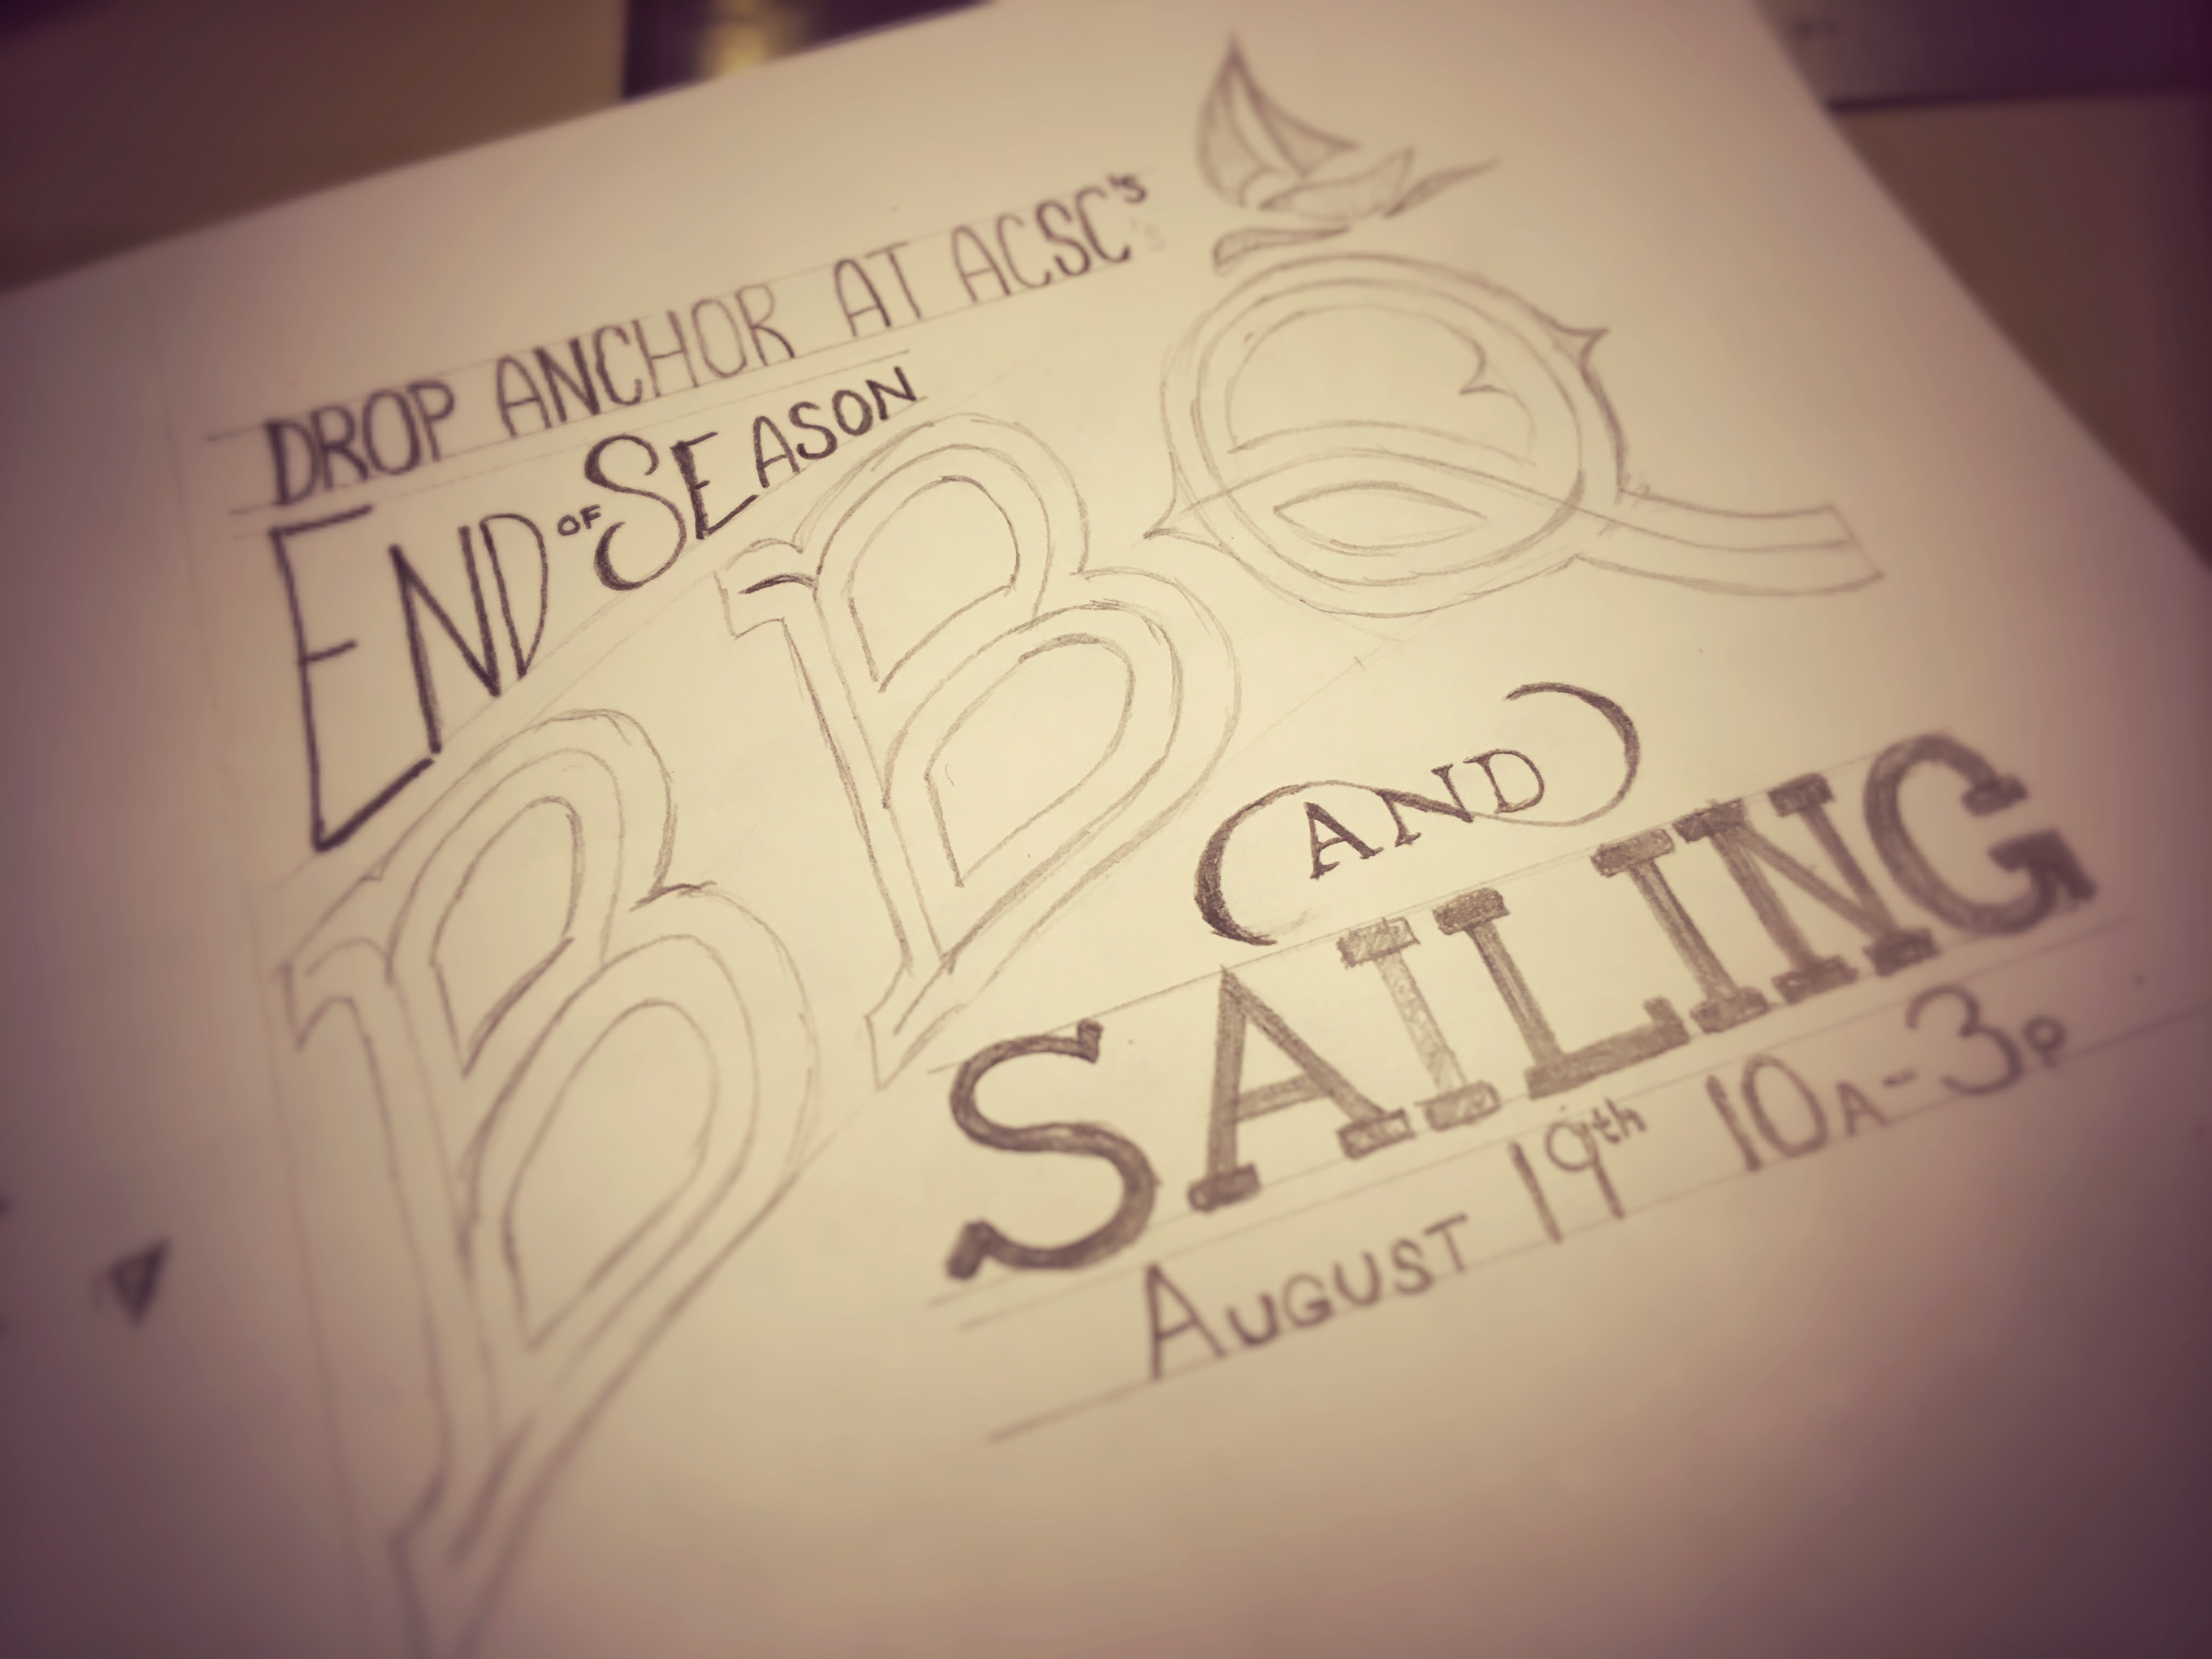 DROP ANCHOR AT ACSC's
END OF SEASON
BBQ
AND
SAILING
AUGUST 19th 10A-3P